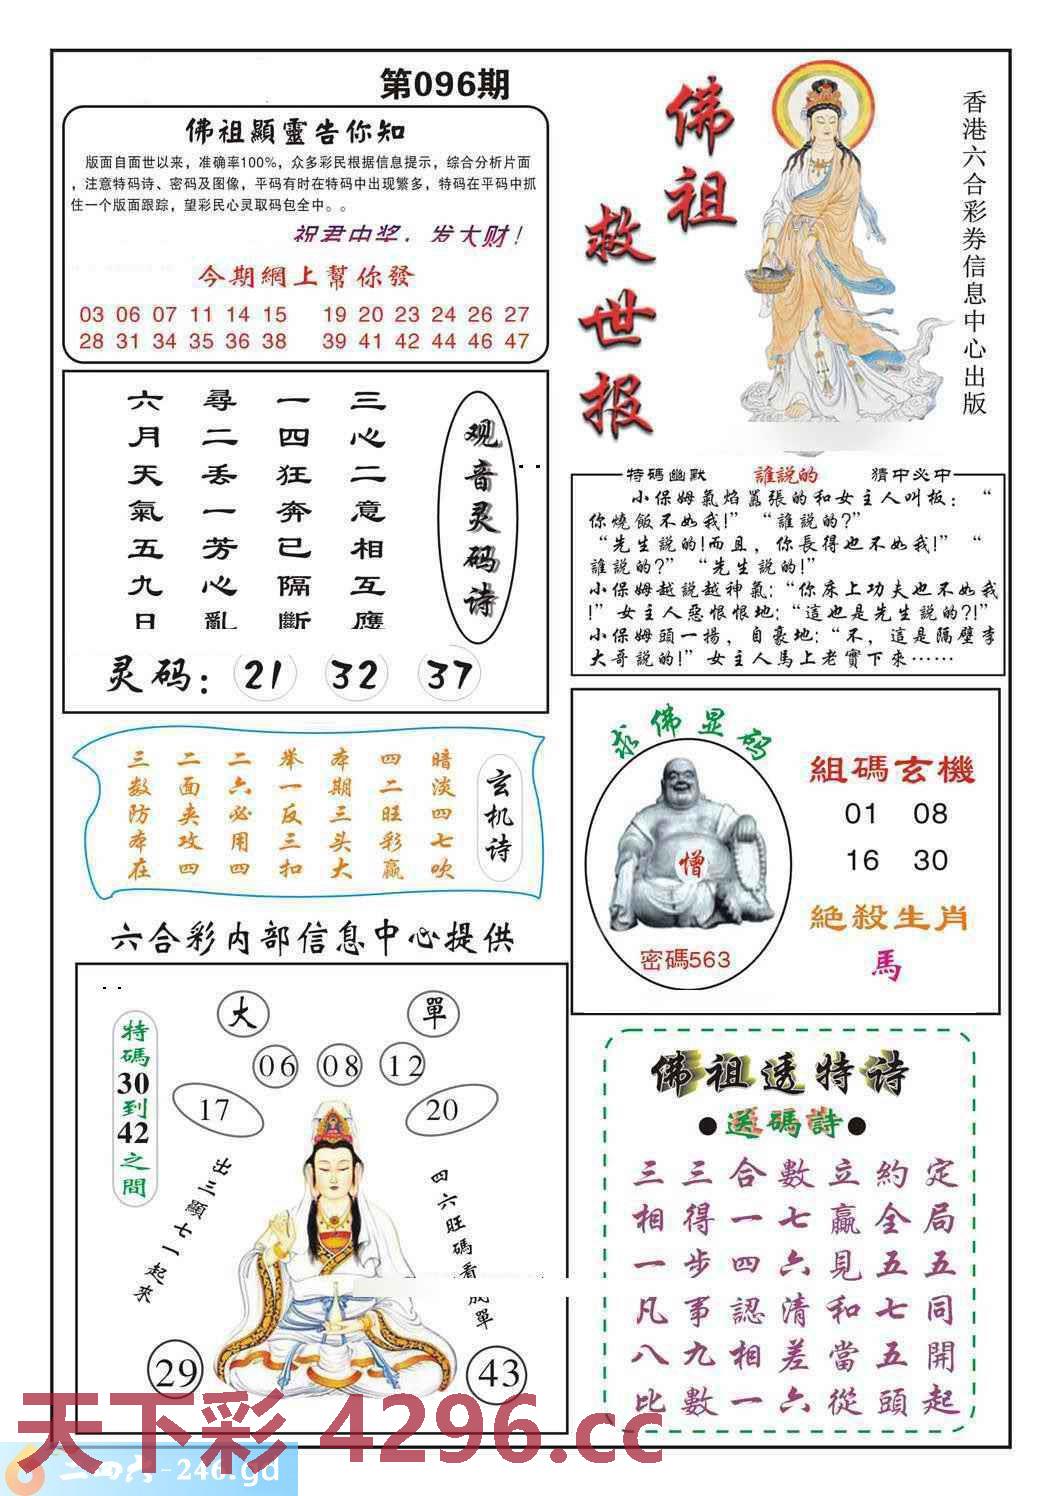 第096期
佛祖顯靈告你知
版面自面世以来，准确率100%，众多彩民根据信息提示，综合分析片面
，注意特码诗、密码及图像，平码有时在特码中出现繁多，特码在平码中抓
住一个版面跟踪，望彩民心灵取码包全中。。
祝君中奖，发大财！
今期網上幫你發
03 06 07 11 14 15 19 20 23 24 26 27
28 31 34 35 36 38 39 41 42 44 46 47
佛祖
救世报
香港六合彩券信息中心出版
观音灵码诗
三心二意相互應
一四狂奔已隔斷
尋二丢一芳心亂
六月天氣五九日
灵码：21 32 37
特碼幽默 誰説的 猜中必中
小保姆氣焰囂張的和女主人叫板：“
你燒飯不如我!”“誰説的?”
“先生説的!而且，你長得也不如我!”“
誰説的?”“先生説的!”
小保姆越説越神氣:“你床上功夫也不如我
!”女主人惡恨恨地:“這也是先生説的?!”
小保姆頭一揚，自豪地:“不，這是隔壁李
大哥説的!”女主人馬上老實下來……
玄机诗
暗淡四七吹
四二旺彩赢
本期三头大
举一反三扣
二六必用四
二面夹攻四
三数防本在
求佛显码
憎
密碼563
組碼玄機
01 08
16 30
絶殺生肖
馬
六合彩内部信息中心提供
特碼30到42之間
大 單
06 08 12
17 20
出三顯七一起來
四六旺碼看成單
29 43
佛祖透特诗
●送碼詩●
三三合數立約定
相得一七贏全局
一步四六見五五
凡事認清和七同
八九相差當五開
比數一六從頭起
天下彩 4296.cc
二四六-246.gd